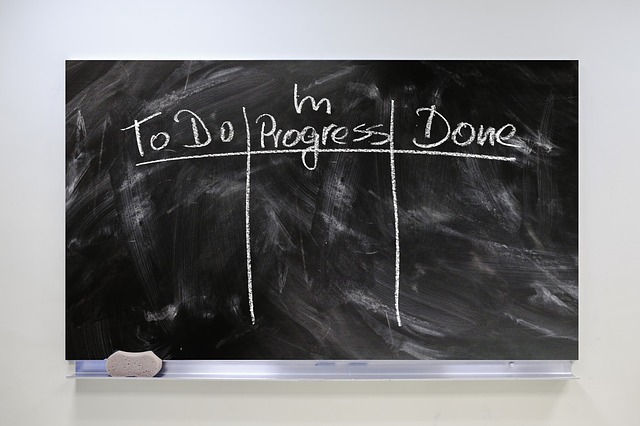 To Do
In
Progress
Done